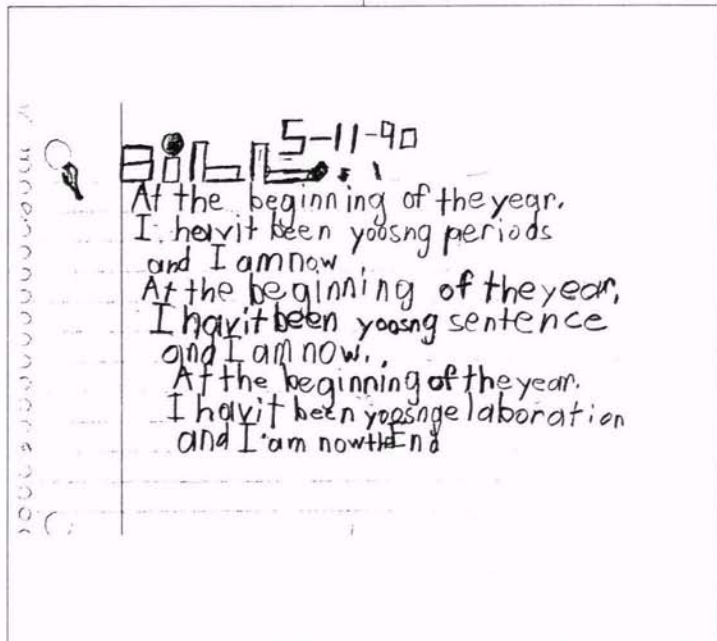 BiLL 5-11-90
At the beginning of the year.
I havit been yoosng periods
and I am now
At the beginning of the year,
I havit been yoosng sentence
and I am now.
At the beginning of the year.
I havit been yoosng elaboration
and I am now the End